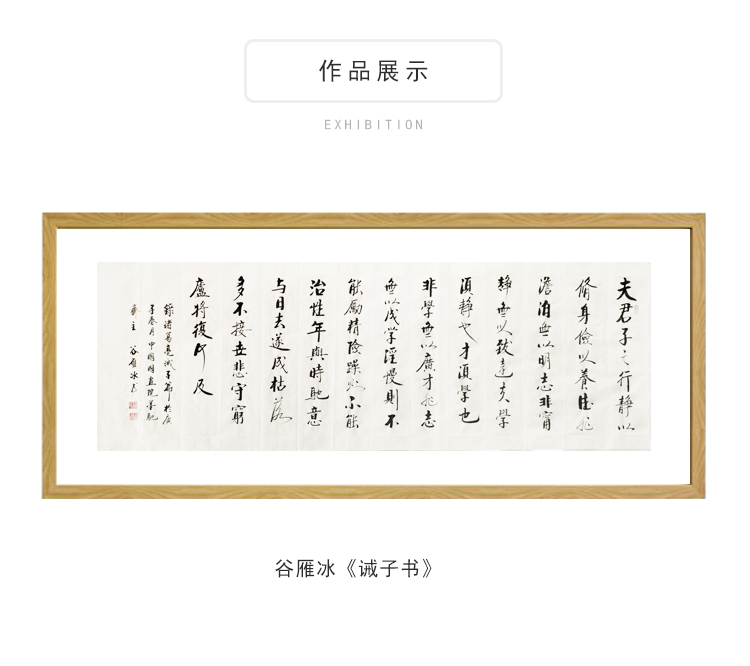 作品展示
EXHIBITION
夫君子之行静以
脩身儉以養德非
澹泊無以明志非甯
靜無以致遠夫學
須靜也才須學也
非學無以廣才非志
無以成學淫慢則不
能勵精險躁則不能
治性年與時馳意
与日去遂成枯落
多不接世悲守窮
廬將復何及
錄諸葛亮誡子 於庚
子春月中國國畫院墨馳
齋主 谷雁冰書
谷雁冰《诫子书》